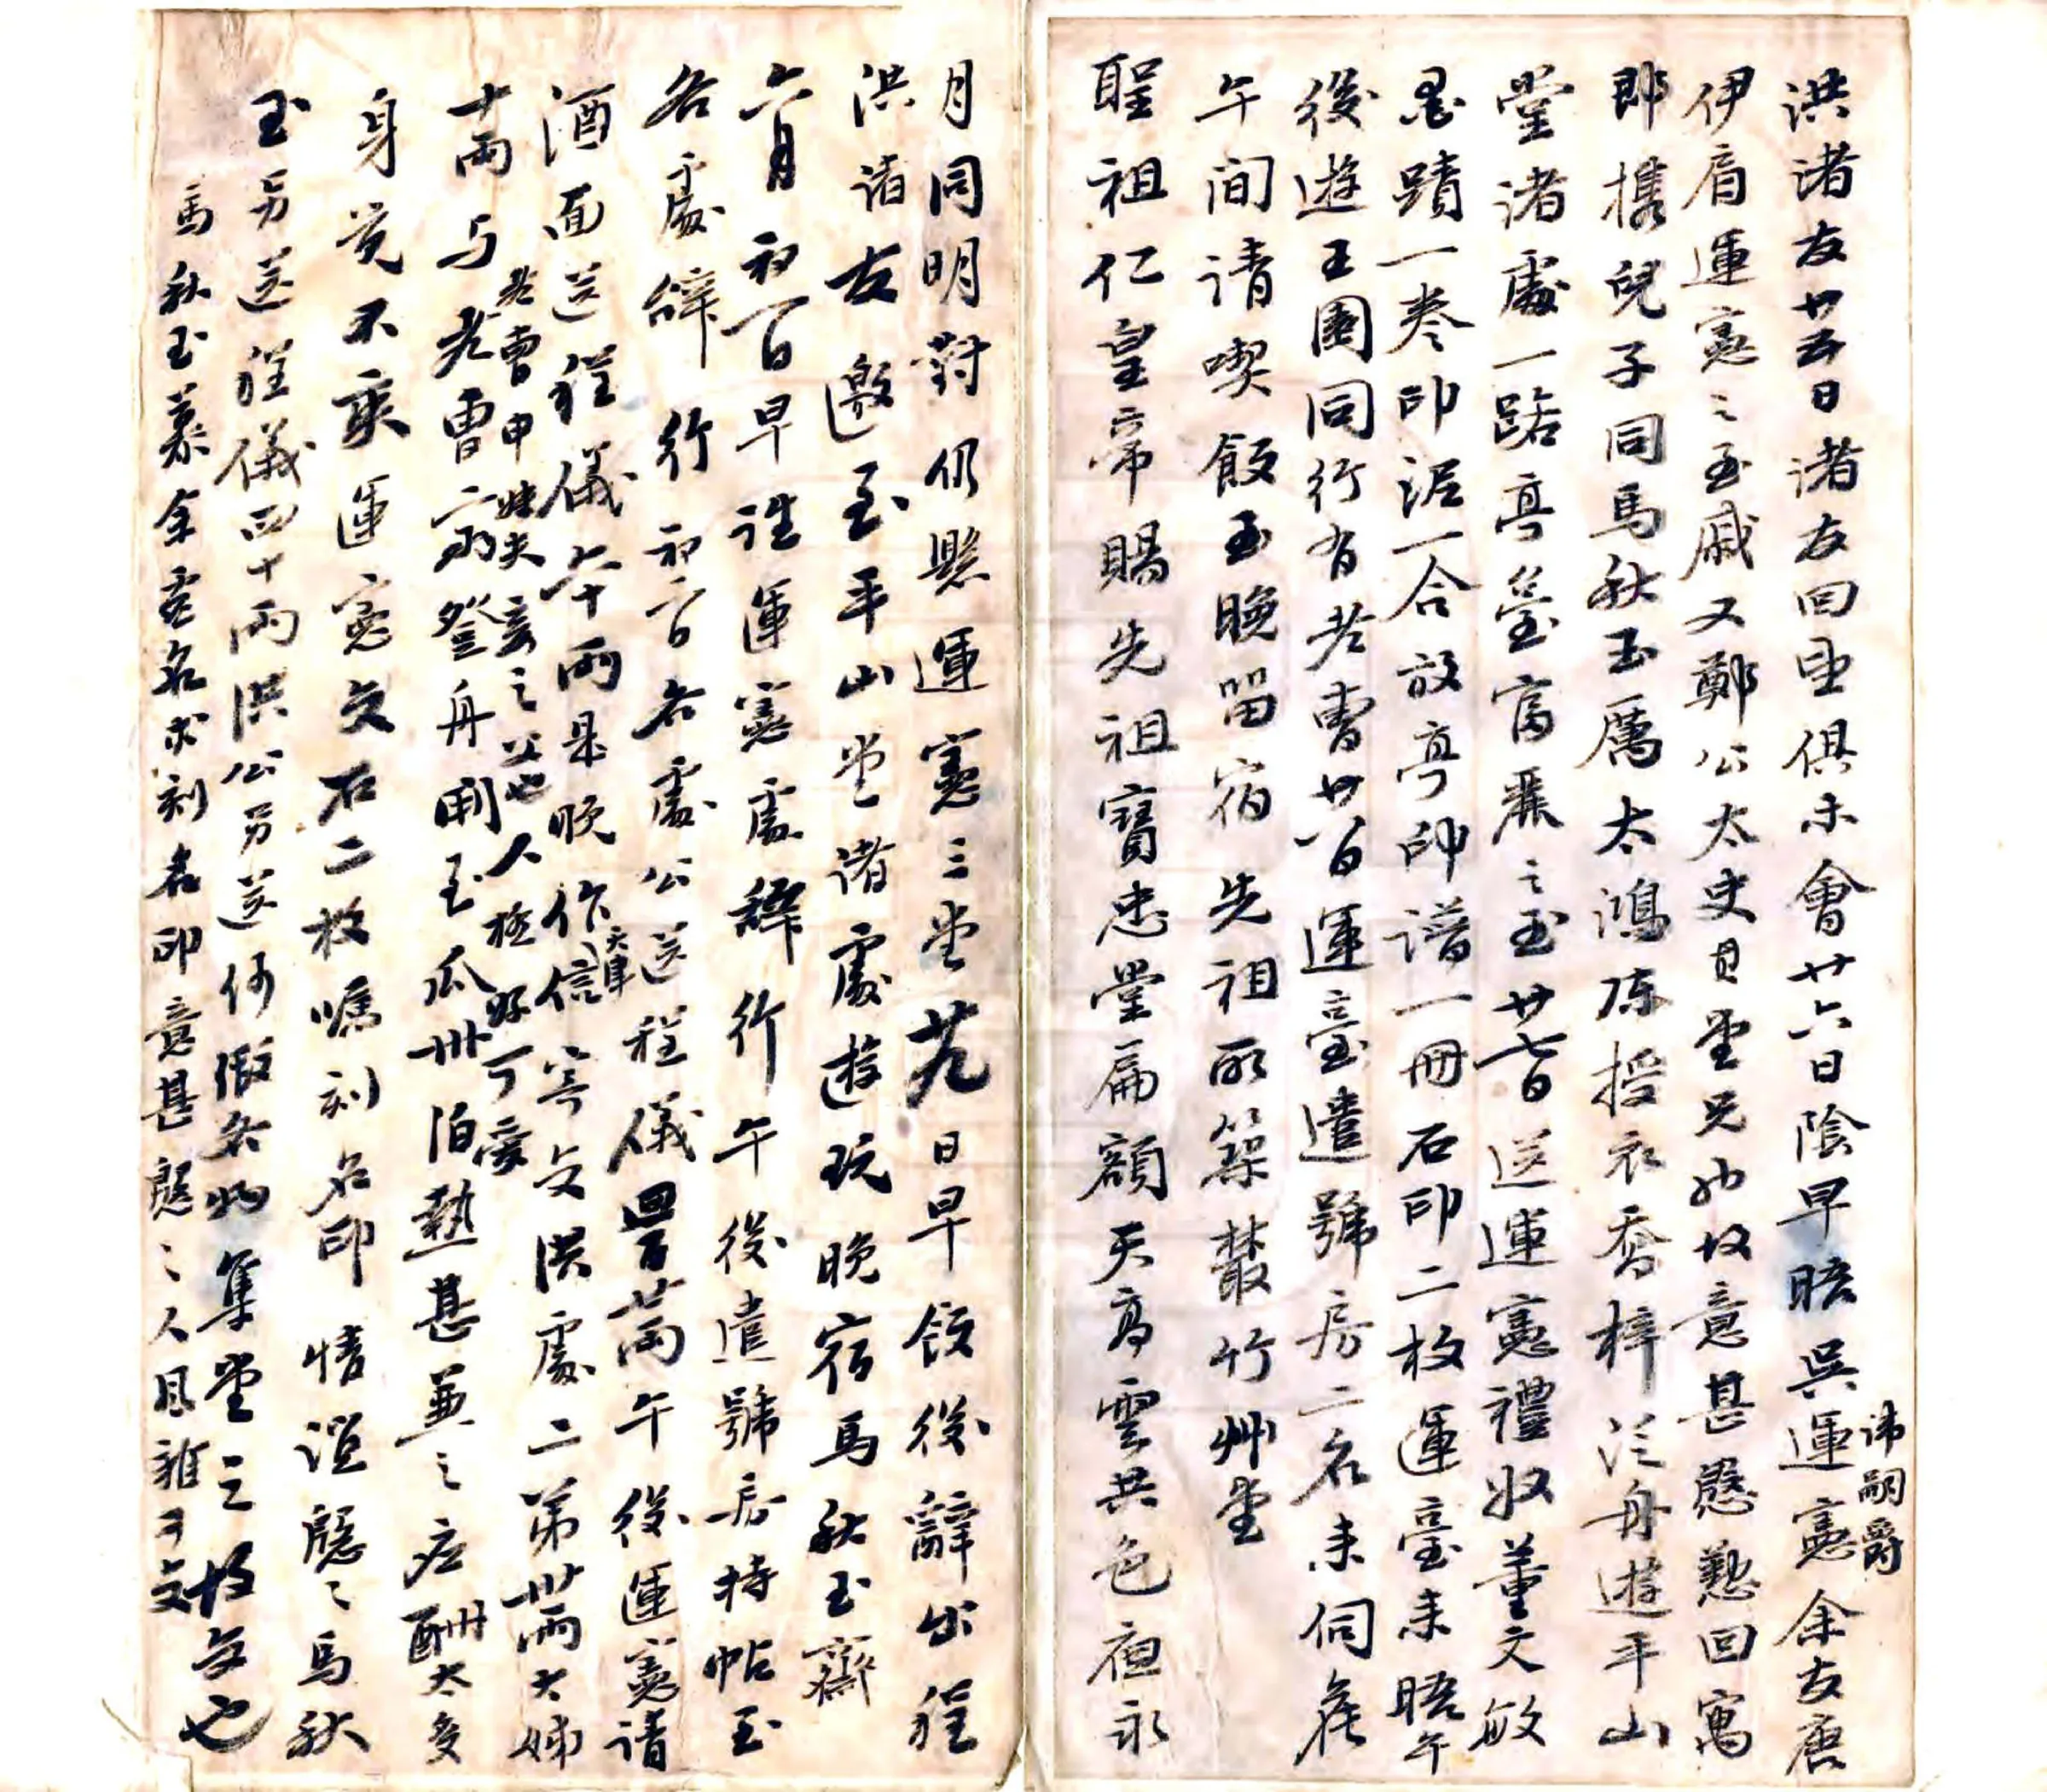 洪諸友廿五日諸友回望俱未會廿六日陰早晤吳運憲余友唐
諱嗣爵
伊眉運憲之至戚又鄭公太史直堂兄也故意甚慇懃回寓
即携兒子同馬秋玉厲太鴻陳授衣喬梓泛舟遊平山
堂渚處一路亭臺富麗之至廿七日送運憲禮收董文敏
墨蹟一卷印泥一合放亭印譜一冊石印二枚運臺来晤午
後遊王園同行有老曹廿八日運臺遣號房二名来伺候
午间请喫飯至晚留宿先祖所築叢竹艸堂
聖祖仁皇帝賜先祖寶忠堂扁額天高雲共色夜永
月同明對仍懸運憲三堂廿九日早飯後辭出程
洪諸友邀至平山堂諸處遊玩晚宿馬秋玉齋
六月初一日早謹運憲處辭行午後遣號房持帖至
各處辭行初二日各處公送程儀四百廿兩午後運憲请
酒面送程儀六十兩是晚作天津信寄交洪處二弟卅兩大姊
十两与老曹二弟登舟開至瓜州泊熱甚兼之应酬太多
老曹申妹夫章之父也人極好可愛
身竟不爽運憲交石二枚嘱刻名印情誼慇之馬秋
玉另送程儀四十兩洪公另送何徵各物集堂之故交也
馬秋玉慕余虚名求刻名印意甚慇之人且雅可交